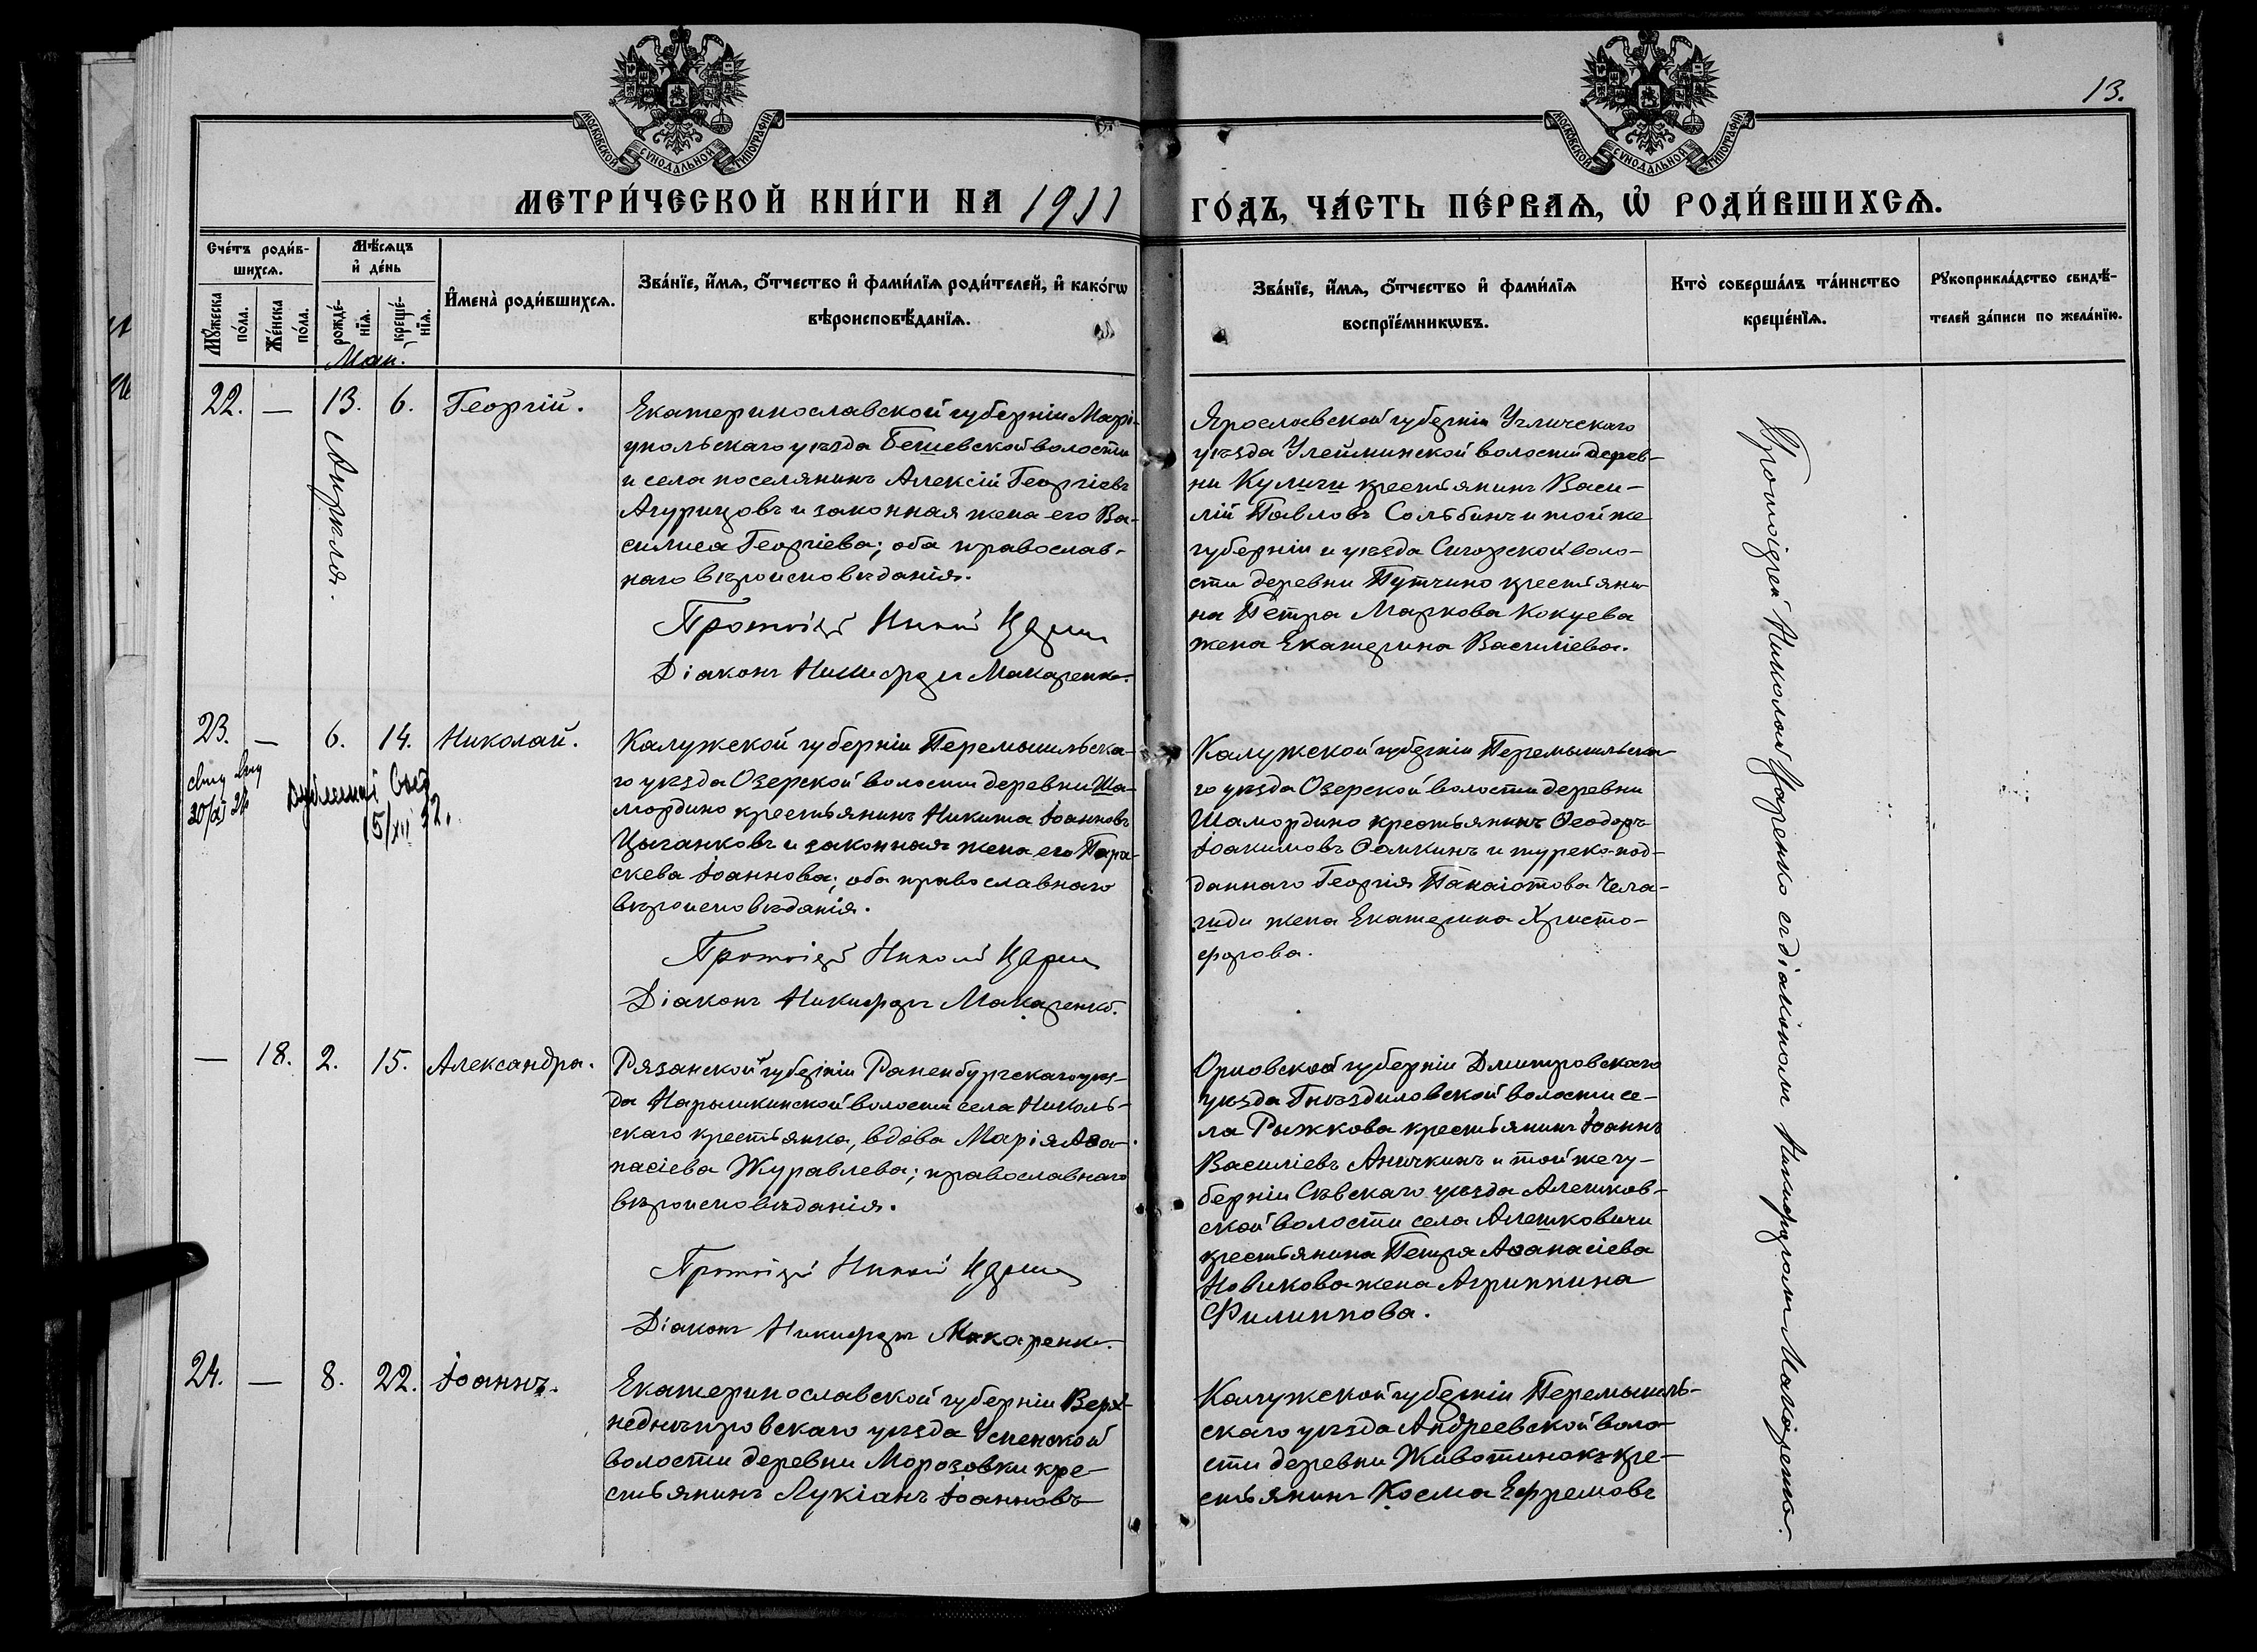 13.
МОСКОВСКОЙ СѴНОДАЛЬНОЙ ТИПОГРАФІИ
МОСКОВСКОЙ СѴНОДАЛЬНОЙ ТИПОГРАФІИ
МЕТРИ́ЧЕСКОЙ КНИ́ГИ НА 1911 ГО́ДЪ, ЧА́СТЬ ПЕ́РВАѦ, Ѡ҆ РОДИ́ВШИХСѦ.
Сче́тъ роди́в-
шихсѧ.
Мꙋ́жеска
по́ла.
Же́нска
по́ла.
Мѣ́сѧцъ
и҆ де́нь
рожде́-
нїѧ.
креще́-
нїѧ.
И҆мена̀ роди́вшихсѧ.
Зва́нїе, и҆́мѧ, ѻ҆́тчество и҆ фами́лїѧ роди́телей, и҆ како́гѡ
вѣроисповѣ́данїѧ.
Зва́нїе, и҆́мѧ, ѻ҆́тчество и҆ фами́лїѧ
воспрїе́мникѡвъ.
Кто̀ соверша́лъ та́инство
креще́нїѧ.
Рꙋкоприкла́дство свидѣ́-
телей за́писи по жела́нїю.
Май.
22. — 13. 6. Георгій.
Апрѣля.
Екатеринославской губерніи Марі-
упольскаго уѣзда Бешевской волости
и села поселянинъ Алексій Георгіевъ
Агурицовъ и законная жена его Ва-
силиса Георгіева; оба православ-
наго вѣроисповѣданія.
Діаконъ Никифоръ Макаренко.
Ярославской губерніи Угличскаго
уѣзда Улейминской волости дерев-
ни Кулиги крестьянинъ Васи-
лій Павловъ Сольбинъ и той же
губерніи и уѣзда Сигорской воло-
сти деревни Путчино крестьяни-
на Петра Маркова Кокуева
жена Екатерина Василіева.
Протоіерей Николай Царенко съ діакономъ Никифоромъ Макаренко.
23. — 6. 14. Николай.
30/XI 24
15/XII 32.
Калужской губерніи Перемышльска-
го уѣзда Озерской волости деревни Ша-
мордино крестьянинъ Никита Іоанновъ
Цыганковъ и законная жена его Пара-
скева Іоаннова; оба православнаго
вѣроисповѣданія.
Діаконъ Никифоръ Макаренко.
Калужской губерніи Перемышльска-
го уѣзда Озерской волости деревни
Шамордино крестьянинъ Ѳеодоръ
Іоакимовъ Ѳомкинъ и турецко-под-
даннаго Георгія Панаіотова Чела-
гиди жена Екатерина Христо-
форова.
— 18. 2. 15. Александра.
Рязанской губерніи Раненбургскаго уѣз-
да Нарышкинской волости села Николь-
скаго крестьянка, вдова Марія Аѳа-
насіева Журавлева; православнаго
вѣроисповѣданія.
Діаконъ Никифоръ Макаренко.
Орловской губерніи Дмитровскаго
уѣзда Гнѣздиловской волости се-
ла Рыжкова крестьянинъ Іоаннъ
Василіевъ Аничкинъ и той же гу-
берніи Сѣвскаго уѣзда Алешков-
ской волости села Алешковичи
крестьянина Петра Аѳанасіева
Новикова жена Агриппина
Филиппова.
24. — 8. 22. Іоаннъ.
Екатеринославской губерніи Верх-
неднѣпровскаго уѣзда Успенской
волости деревни Морозовки кре-
стьянинъ Лукіанъ Іоанновъ
Калужской губерніи Перемышль-
скаго уѣзда Андреевской воло-
сти деревни Животинокъ кре-
стьянинъ Косма Ефремовъ